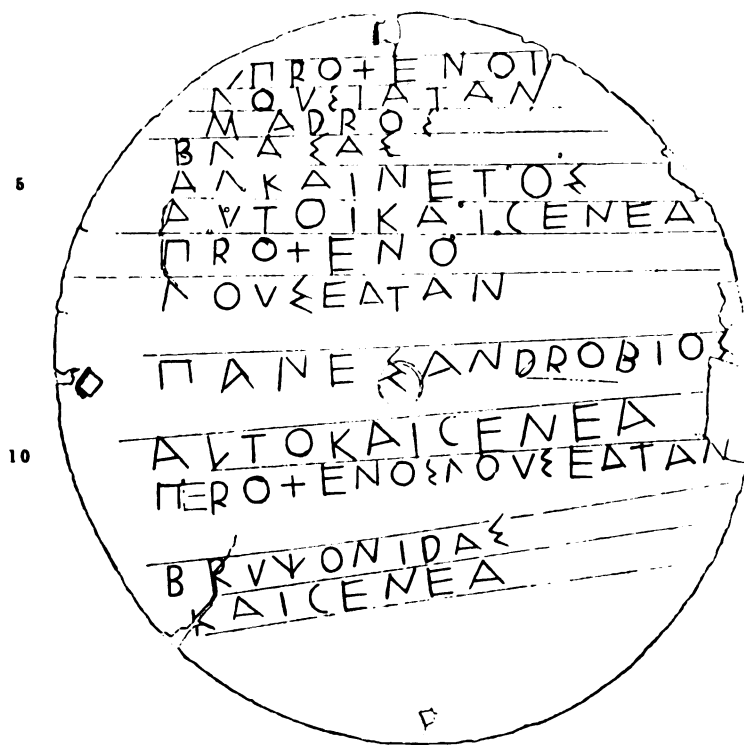 ΠΡΟ+ΕΝΟΙ
ΛΟΥΣΙΑΤΑΝ
ΜΑΔΡΟΣ
ΒΛΑΣΑΣ
5 ΑΛΚΑΙΝΕΤΟΣ
ΑΥΤΟΙΚΑΙΓΕΝΕΑ
ΠΡΟ+ΕΝΟ
ΛΟΥΣΕΑΤΑΝ
ΠΑΝΕΣΑΝΔΡΟΒΙΟ
10 ΑΥΤΟΚΑΙΓΕΝΕΑ
ΠΕΡΟ+ΕΝΟΣΛΟΥΣΕΑΤΑΝ
ΒΡΥΨΟΝΙΔΑΣ
ΚΑΙΓΕΝΕΑ